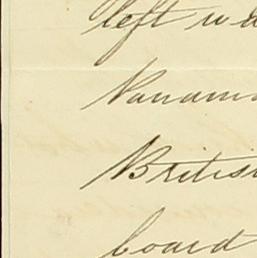 left
Panama
British
board